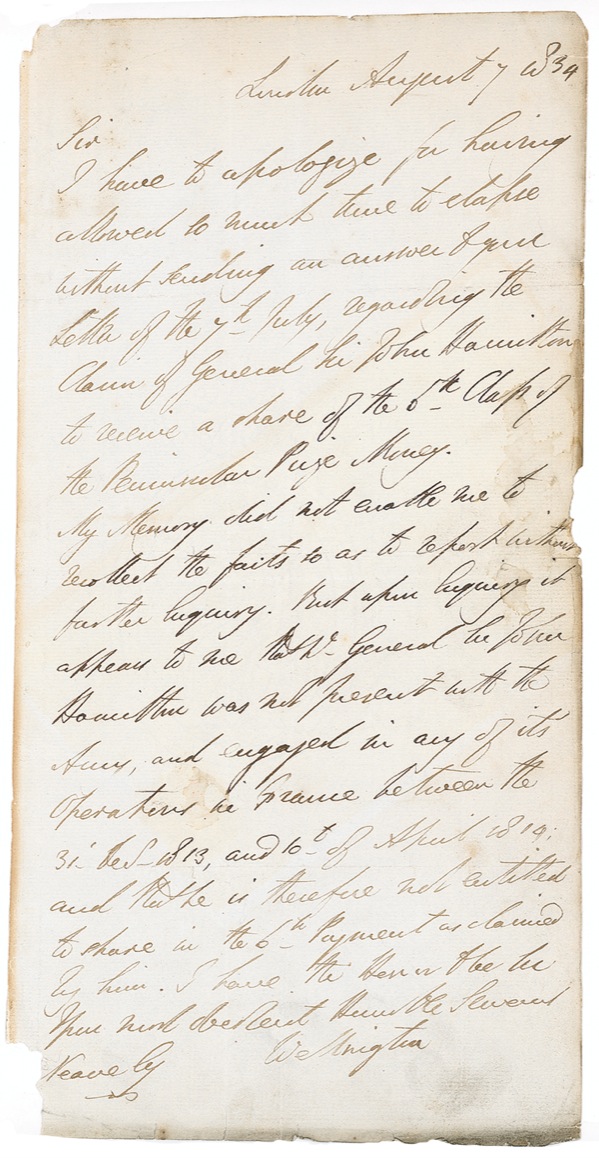 London August 7 1834
Sir
I have to apologize for having
allowed so much time to elapse
without sending an answer to your
Letter of the 7th July, regarding the
Claim of General Sir John Hamilton
to receive a share of the 6th Class of
the Peninsular Prize Money.
My Memory did not enable me to
recollect the facts so as to report without
further Enquiry. But upon Enquiry it
appears to me that Lt General Sir John
Hamilton was not present with the
Army, and engaged in any of its
Operations in France between the
31st Decr 1813, and 10th of April 1814;
and that he is therefore not entitled
to share in the 6th Payment as claimed
by him. I have the Honor to be Sir
Your most obedient Humble Servant
Wellington
Neave Esq